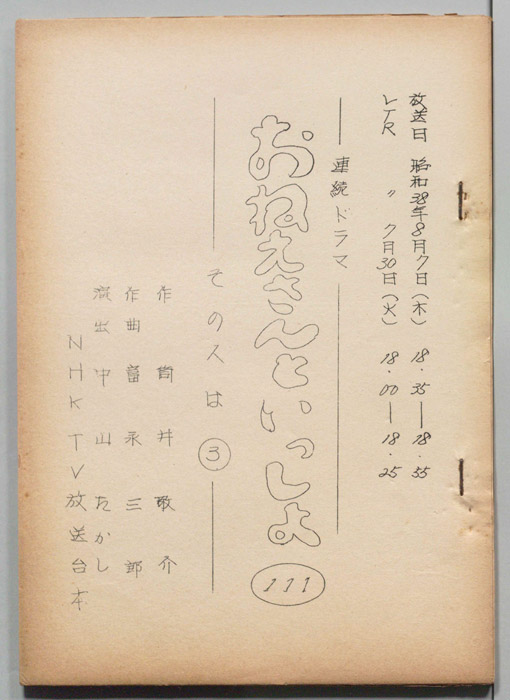 放送日 昭和38年8月7日(木) 18.35―18.55
VTR 〃 7月30日(火) 18.00―18.25
連続ドラマ
おねえさんといっしょ 111
その人は ③
作 筒井敬介
作曲 冨永三郎
演出 中山たかし
NHK TV放送台本